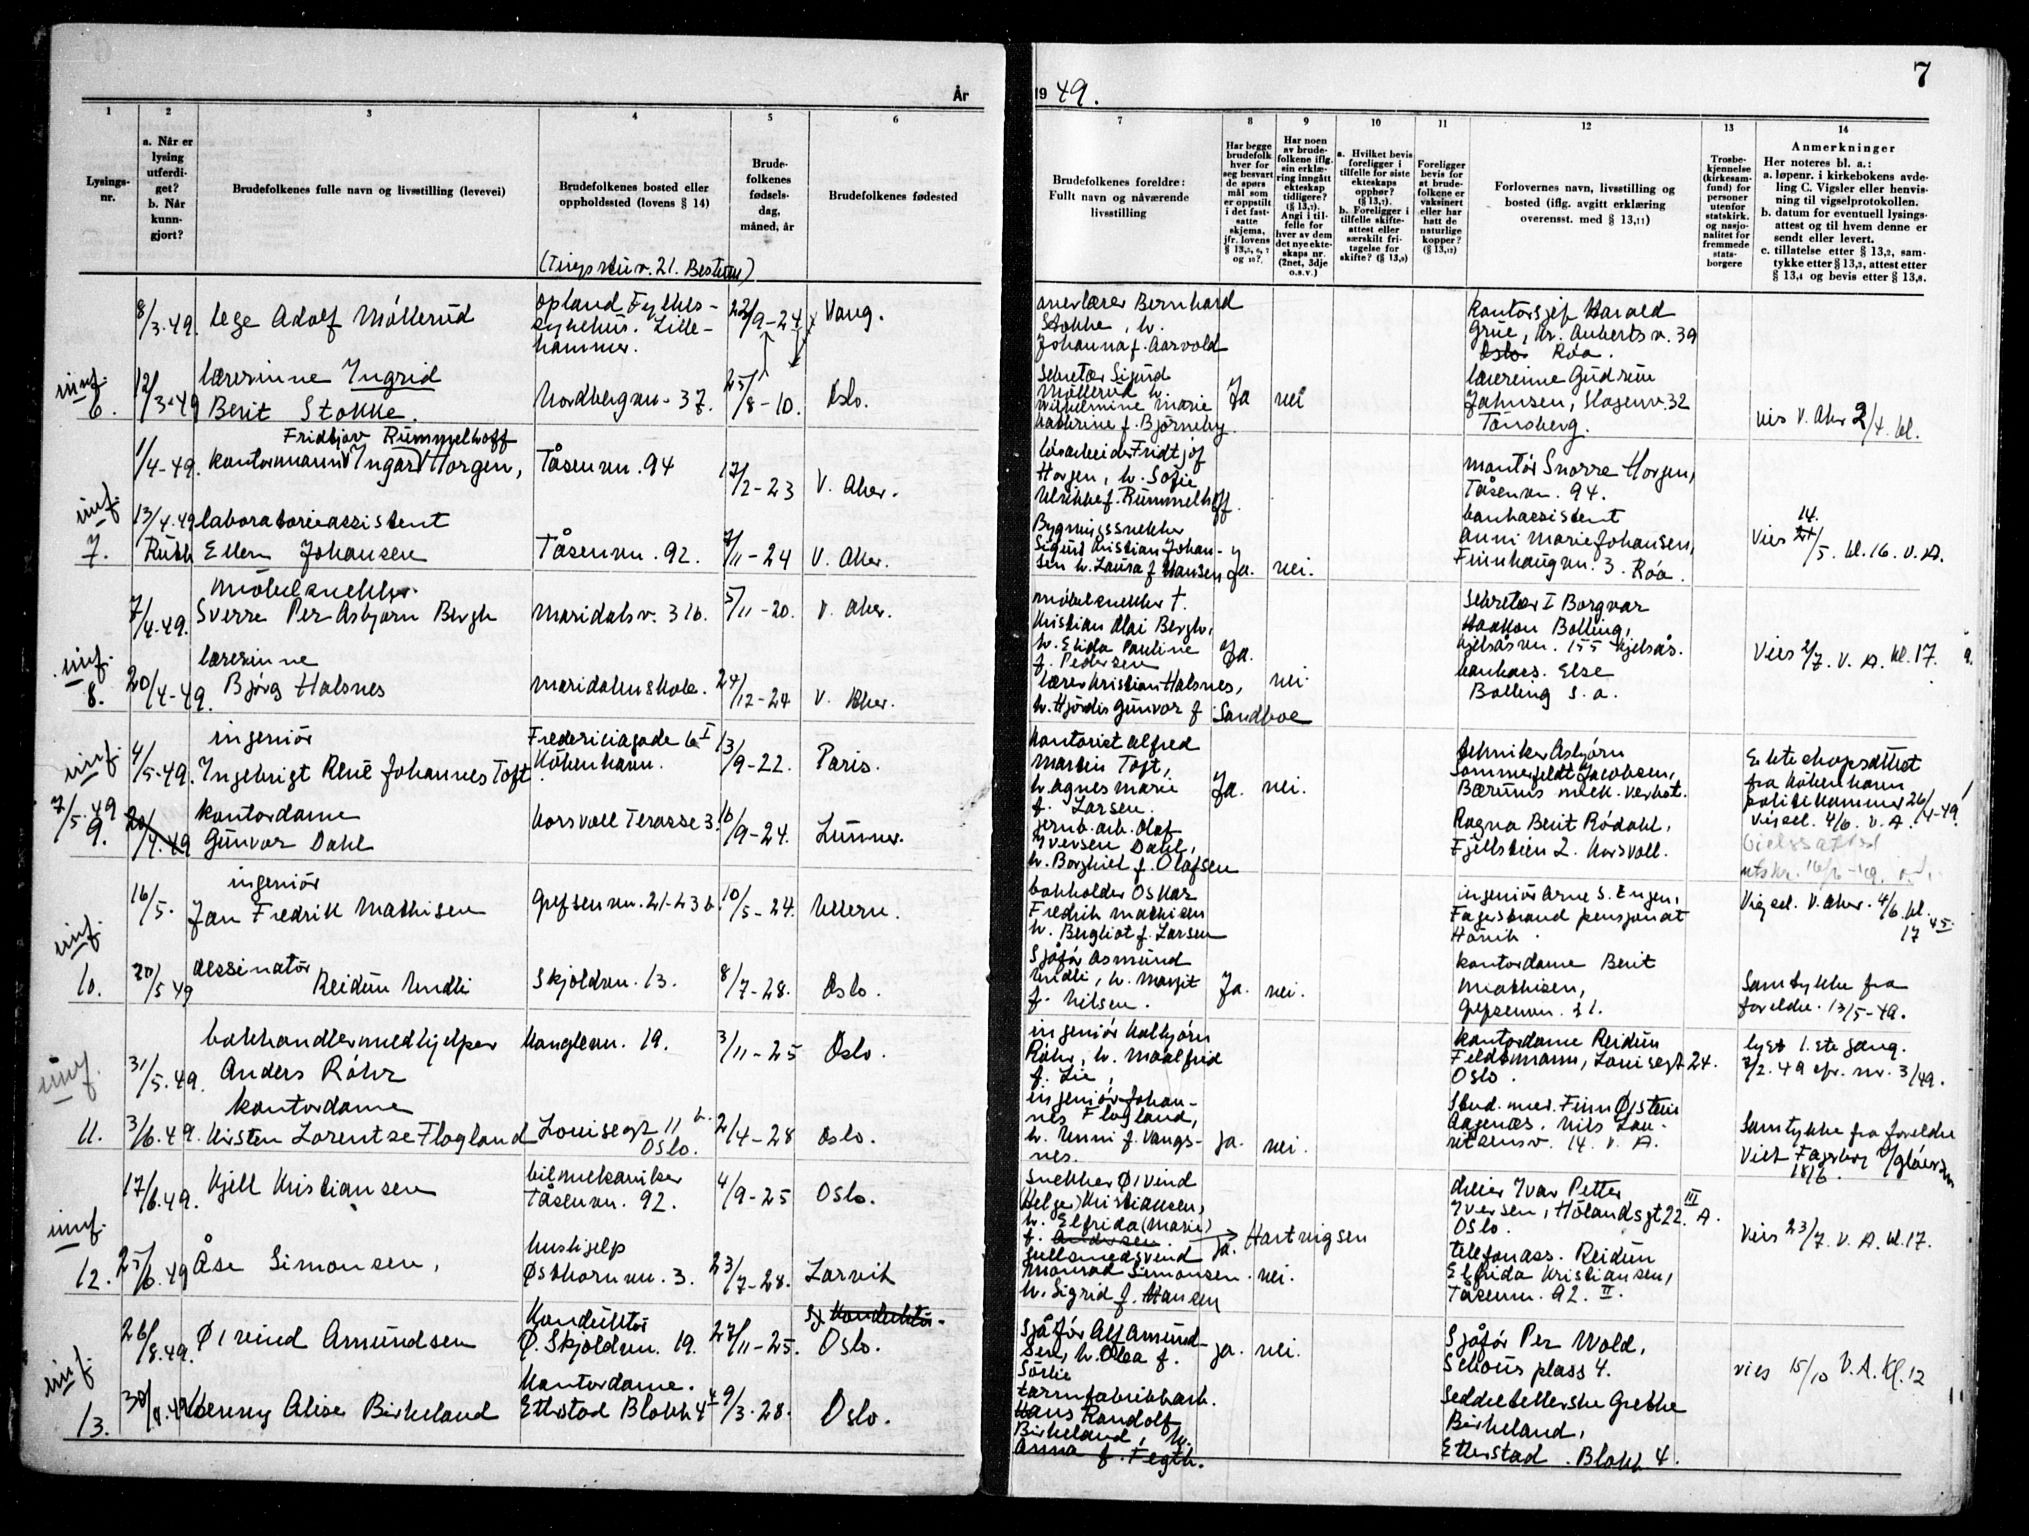 7
År
19 49.
1
2
3
4
5
6
7
8
9
10
11
12
13
14
Lysings-
nr.
a. Når er
lysing
utferdi-
get?
b. Når
kunn-
gjort?
Brudefolkenes fulle navn og livsstilling (levevei)
Brudefolkenes bosted eller
oppholdssted (lovens § 14)
Brude-
folkenes
fødsels-
dag,
måned, år
Brudefolkenes fødested
Brudefolkenes foreldre:
Fullt navn og nåværende
livsstilling
Har begge
brudefolk
hver for
seg besvart
de spørs
mål som
er oppstilt
i det fast-
satte
skjema,
jfr. lovens
§ 13,5, 6, 7
og 10?
Har noen
av brude-
folkene iflg.
sin erklæ-
ring inngått
ekteskap
tidligere?
(§ 13,7).
Angi i til-
felle for
hver av dem
det nye ekte-
skaps nr.
(2net, 3dje
o.s.v.)
a. Hvilket bevis
foreligger i
tilfelle for siste
ekteskaps
opphør?
(§ 13,7).
b. Foreligger i
tilfelle skifte-
attest eller
særskilt fri-
tagelse for
skifte? (§ 13,9)
Foreligger
bevis for
at brude-
folkene er
vaksinert
eller har
hatt de
naturlige
kopper?
(§ 13,12)
Forlovernes navn, livsstilling og
bosted (iflg. avgitt erklæring
overensst. med § 13,11)
Trosbe-
kjennelse
(kirkesam-
fund) for
personer
utenfor
statskirk.
og nasjo-
nalitet for
fremmede
stats-
borgere
Anmerkninger
Her noteres bl. a.:
a. løpenr. i kirkebokens avde-
ling C. Vigsler eller henvis-
ning til vigselprotokollen.
b. datum for eventuell lysings-
attest og til hvem denne er
sendt eller levert.
c. tillatelse etter § 13,2, sam-
tykke etter § 13,3, attest etter
§ 13,4 og bevis etter § 13,8.
8/3.49.
lege Adolf Møllerud
opland Fylkes-
sykehus. Lille-
hammer.
Vang.
Bernhard
Stokke, h.
Johanna f. Aarvold
kontorsjef Harald
Grue, hr. Auberts v. 39
Oslo Røa.
6.
12/3-49
lærerinne Ingrid
Berit Stokke.
Nordbergvn. 37.
25/8-10.
Oslo.
Sekretær Sigurd
Møllerud h.
Wilhelmine Marie
Kathrine f. Bjørneby.
Ja
nei
lærerinne Gudrun
Johnsen, Slagenv. 32
Tønsberg.
vies V. Aker 2/4. kl.
1/4-49.
Fridtjov Rummelhoff
kontormann Ingar Horgen,
Tåsenvn. 94
17/2-23
V. Aker.
Fridtjof
Horgen, h. Sofie
Ulrikke f. Rummelhoff.
montør Snorre Horgen,
Tåsenvn. 94.
7.
13/4.49
laboratorieassistent
Ruth Ellen Johansen
Tåsenvn. 92.
7/11-24
V. Aker.
Bygningssnekker
Sigurd Kristian Johan-
sen h. Laura f. Hansen
Ja.
nei.
bankassistent
Anni Marie Johansen,
Finnhaugvn. 3. Røa.
Vies 14./5. kl. 16. V. A.
7/4-49.
møbelsnekker
Sverre Per Asbjørn Bergh
Maridalsv. 316.
5/11-20.
V. Aker.
møbelsnekker †.
Kristian Olai Bergh,
h. Elida Pauline
f. Pedersen
Ja.
Sekretær I Borgvar
Haakon Bolling,
Kjelsåsvn. 155 Kjelsås.
Vies 2/7. V. A. kl. 17.
8.
20/4-49.
lærerinne
Bjørg Halsnes
Maridalen skole.
24/12-24
V. Aker.
lærer Kristian Halsnes,
h. Hjørdis Gunvor f Sandboe
nei.
bankass. Else
Bolling s. a.
4/5.49.
ingeniør
Ingebrigt René Johannes Toft
Fredericiagade 6 I
København.
13/9-22.
Paris.
kontorist Alfred
Martin Toft,
h. Agnes Marie
f. Larsen.
Ja.
nei.
tekniker Asbjørn
Sommerfeldt Jacobsen,
Bærums mek. verkst.
Ekteskapsattest
fra København
politikammer 26/4-49!
Vigsel. 4/6. V. A.
7/5.49
9.
20/4.49
kontordame
Gunvor Dahl
Korsvoll Terasse 3.
16/9-24.
Lunner.
jernb. arb. Olaf
Iversen Dahl,
h. Borghild f. Olafsen
Ragna Berit Rødahl,
Fjellstien 2. Korsvoll.
16/5.
ingeniør
Jan Fredrik Mathisen
Grefsenvn. 21-23 b.
10/5-24.
Ullern.
bokholder Oskar
Fredrik Mathisen
h. Bergliot f. Larsen
ingeniør Arne S. Engen,
Fagerstrand pensjonat
Høvik.
Vigsel. V. Aker. 4/6 kl.
17 45
10.
20/5 49
dessinatør
Reidun Undli
Skjoldvn. 13.
8/7-28.
Oslo.
Sjåfør Asmund
Undli, h. Margit
f. Nilsen.
Ja.
nei.
kontordame Berit
Mathisen,
Grefsenvn. 21.
Samtykke fra
foreldre. 13/5-49.
31/5.49.
bokhandlermedhjelper
Anders Röhr
Konglevn. 19.
3/11-25
Oslo.
ingeniør Kolbjørn
Röhr, h. Maalfrid
f. Lie,
kontordame Reidun
Feldtmann, Louisesgt 24.
Oslo.
lyst 1.ste gang.
7/2.49 cfr. nr. 3/49.
11.
3/6.49.
kontordame
Kirsten Lorentze Flogland
Louisesgt 11 b.
Oslo.
2/4-28
Oslo.
ingeniør Johan-
nes Flogland,
h. Unni f. Vangs-
nes.
ja.
nei.
Stud. med. Finn Øistein
Aagenæs, Nils Lau-
ritsensv. 14. V. A.
Samtykke fra foreldre
Viet Fagerborg
18/6.
17/6.49.
Kjell Kristiansen
bilmekaniker
Tåsenvn. 92.
4/9-25
Oslo.
Snekker Øivind
(Helge) Kristiansen,
h. Elfrida (Marie)
f. Andersen. → Hartvigsen
Ivar Petter
Iversen, Hølandsgt 22. III A.
Oslo.
Vies 23/7. V. A. kl. 17.
12.
25/6.49
Åse Simonsen,
hushjelp
Østhornvn. 3.
23/7-28.
Larvik
gullsmedsvend
Monrad Simonsen.
h. Sigrid f. Hansen
ja.
nei.
telefonass. Reidun
Elfrida Kristiansen,
Tåsenvn. 92. II.
26/8.49.
Øivind Amundsen
Konduktør
Ø. Skjoldvn. 19.
27/11-25.
Oslo.
Sjåfør Alf Amund-
sen, h. Olea f.
Sörlie
ja.
nei.
Sjåfør Per Wold,
Schous plass 4.
vies 15/10 V.A. Kl. 12
13.
Jenny Alise Birkeland
Kontordame.
Etterstad Blokk 4
9/3.28.
Oslo.
tarmfabrikkarb.
Hans Randolf
Birkeland, h.
Anna f. Fegth.
Seddeltellerske Grethe
Birkeland,
Etterstad. Blokk 4.